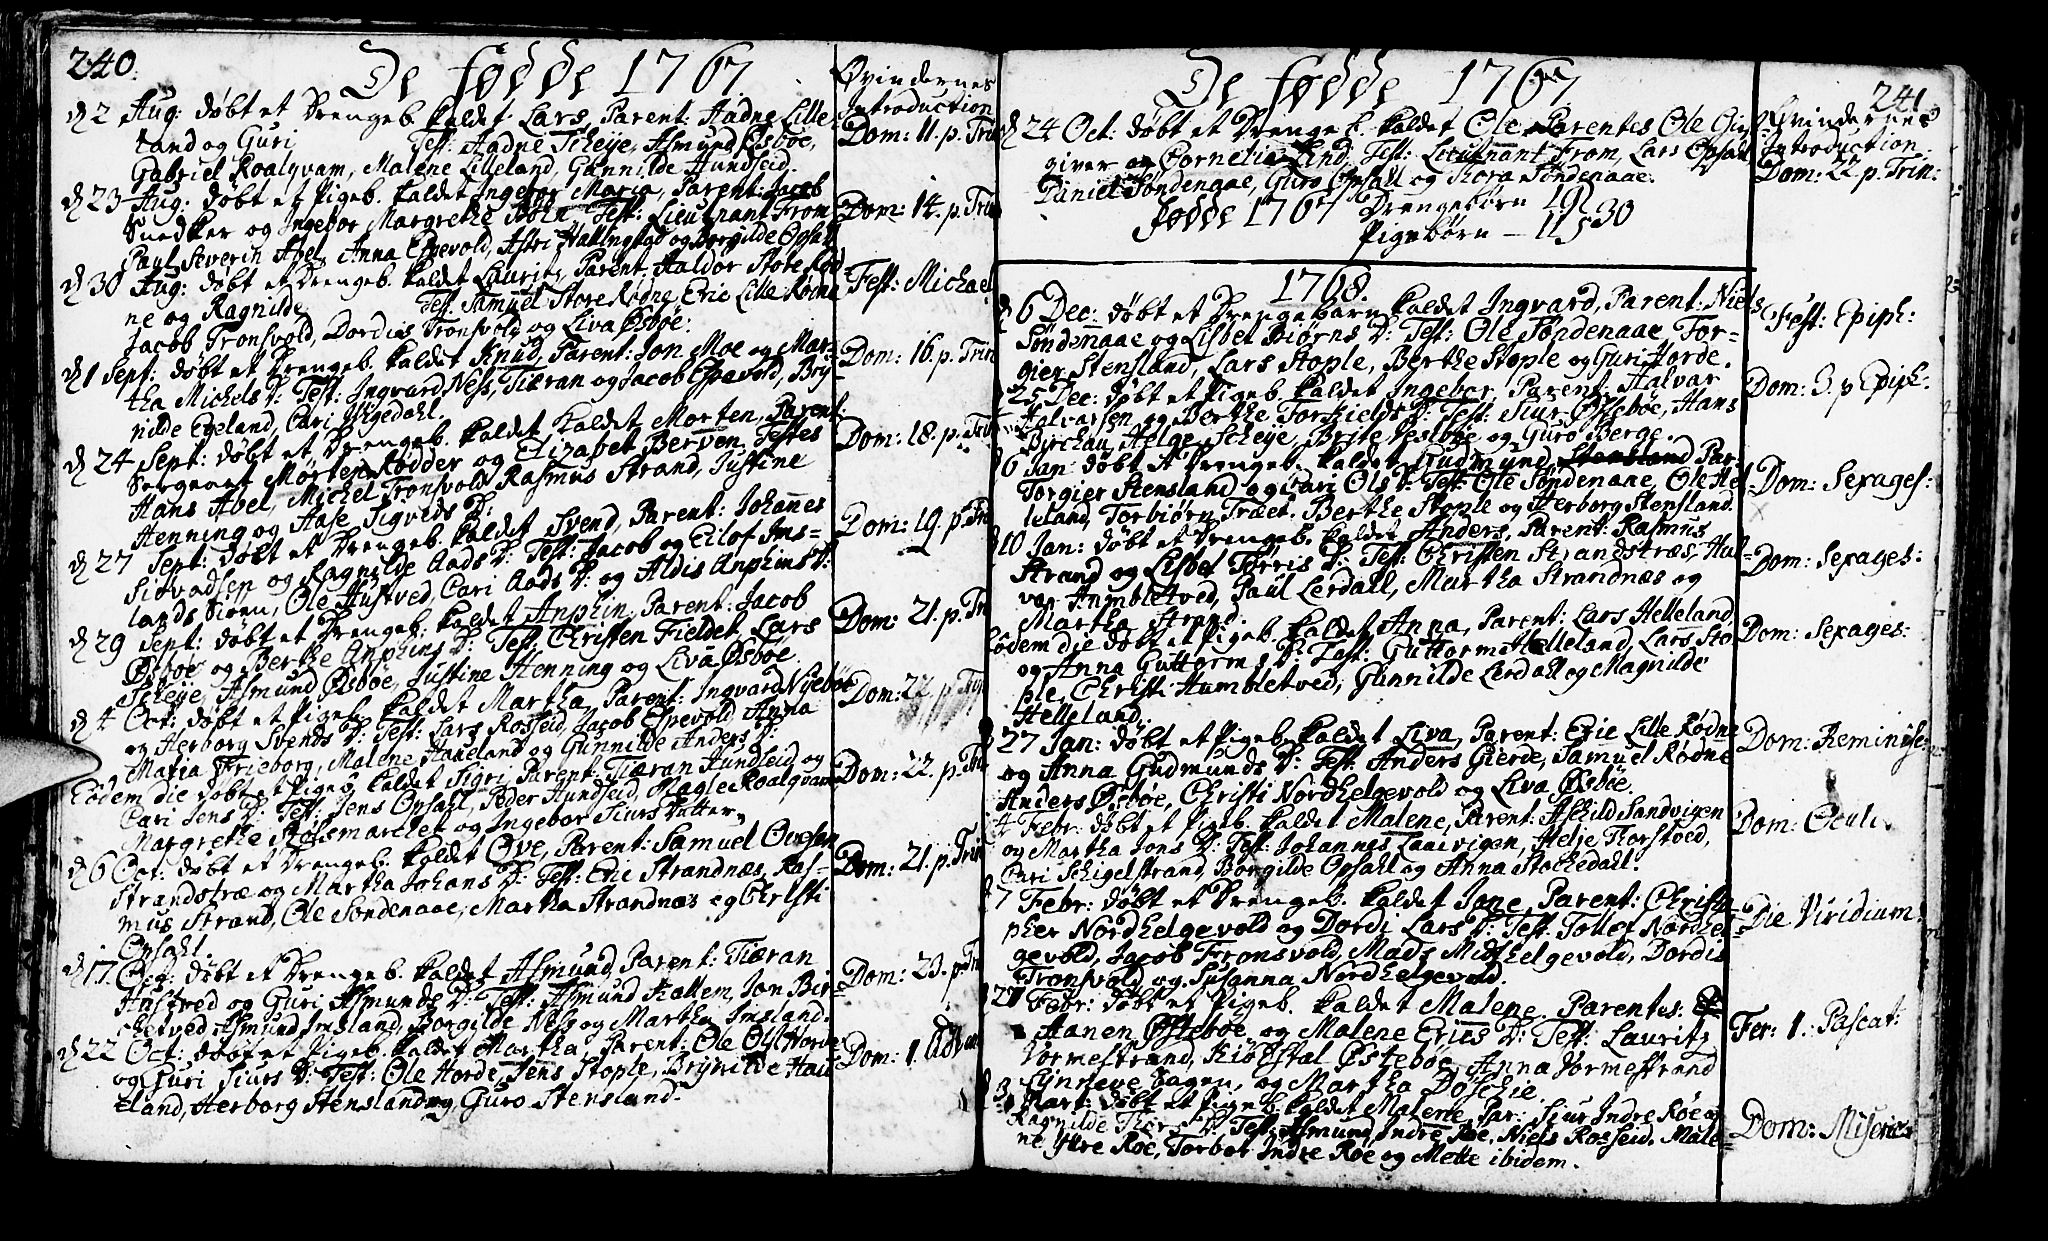 240.
De fødde 1767.
Qvindernes
Introduction
d 2 Aug: døbt et Drengeb. kaldet Lars, Parent: Aadne Lille-
land og Guri Test: Aadne Scheye, Asmund Øsbøe,
Gabriel Roalqvam, Malene Lilleland, Gunnilde Hundseid.
Dom: 11. p. Trin
d 23 Aug: døbt et Pigeb. kaldet Ingebor Maria, Parent: Jacob
Snedker og Ingebor Margrethe Test: Lieutnant From
Paul Severin Abel, Anna Espevold, Astri og Borgilde Opsall
Dom: 14. p. Trin
d 30 Aug: døbt et Drengeb. kaldet Lauritz, Parent: Haldor Store Rød-
ne og Ragnilde Test. Samuel Store Rødne, Eric Lille Rødne
Jacob Tronsvold, Dordis Tronsvold og Liva Øsbøe.
Fest: Michael
d 1 Sept: døbt et Drengeb. kaldet Knud, Parent: Jon Moe og Mar-
tha Michels D: Test: Ingvard Ness, Tiæran og Jacob Espevold, Bry
nilde Egeland, Cari
Dom: 16. p. Trin
d 24 Sept: døbt et Drengeb. kaldet Morten, Parent:
Sergeant Morten Rødder og Elizabet Berven. Testes
Hans Abel, Michel Tronsvold Rasmus Strand, Justine
Henning og Aase Sigveds D:
Dom: 18. p. Trin
d 27 Sept: døbt et Drengeb. kaldet Svend, Parent: Johannes
Sigvadsen og Ragnilde Aads D: Test: Jacob og Eilof Ims-
lands Siøen, Ole Hustved, Cari Aads D: og Aldis Anphins D:
Dom: 19. p. Trin
d 29 Sept: døbt et Drengeb. kaldet Anphin, Parent: Jacob
Øsboe og Berthe Anphins D: Test: Christen Fieldet, Lars
Scheye, Asmund Øsbøe, Justine Henning og Liva Øsbøe
Dom: 21. p. Trin
d 4 Oct: døbt et Pigeb. kaldet Martha, Parent: Ingvard Nyebøe
og Herborg Svends D: Test: Lars Rosseid, Jacob Espevold, Anna
Maria Frieborg, Malene Haueland og Gunnilde Anders D:
Dom: 22. p. Trin
Eodem die døbt et Pigeb. kaldet Sigri, Parent: Tiæran Hundseid og
Cari Jens D: Test: Jens Opsahl, Peder Hundseid, Magle Roalqvam
Margrethe Stølsmarchet og Ingebor Siurs Datter.
Dom: 22. p. Trin
d 6 Oct: døbt et Drengeb. kaldet Ove, Parent: Samuel Ovesen
Strandstræ og Martha Johans D: Test: Eric Strandnæs, Ras-
mus Strand, Ole Søndenaae, Martha Strandnæs og Christi
Opsahl.
Dom: 21. p. Trin
d 17. døbt et Drengeb. kaldet Asmund, Parent: Tiæran
Hustved og Guri Asmunds D: Test: Asmund Kallem, Jon Bir-
chetved Asmund Imsland, Borgilde Ness og Martha Imsland.
Dom: 23. p. Trin
d 22 Oct: døbt et Pigeb. kaldet Martha, Parent: Ole Horde
og Guri Siurs D: Test: Ole Horde, Jens Stople, Brynilde Hau
eland, Herborg Stensland og Guro Stensland.
Dom: 1. Adven
241.
De fødde 1767
Qvindernes
Introduction.
d 24 Oct: døbt et Drengeb. kaldet Ole Parentes Ole
giver og Cornelia Lind, Test: Lieutnant From, Lars Opsall
Daniel Søndenaae, Guro Opsall og Thora Søndenaae.
Dom: 22 p. Trin:
Fødde 1767 Drengebørn 19
Pigebørn – 11 30
1768.
d 6 Dec: døbt et Drengebarn kaldet Ingvard, Parent: Niels
Søndenaae og Lisbet Biørns D: Test: Ole Søndenaae Tor-
gier Stensland, Lars Stople, Berthe Stople og Guri Horde.
Fest: Epiph:
25 Dec: døbt et Pigeb. kaldet Ingebor, Parent: Halvar
Halvarsen og Berthe Torkields D: Test: Siur Østebøe, Hans
Byrchau, Helge Scheye, Brite og Guro Berge.
Dom: 3. p Epiph:
6 Jan: døbt et Drengeb. kaldet Gudmund, Par-
Torgier Stensland og Cari Ols D: Test: Ole Søndenaae, Ole Hel
leland, Torbiørn Træet. Berthe Stople og Herborg Stensland.
Dom: Sexages:
d 10 Jan: døbt et Drengeb. kaldet Anders, Parent: Rasmus
Strand og Lisbet Torris D: Test: Christen Strandstræ, Hal-
var Humbletved, Paul Lerdall, Martha Strandnæs og
Martha Strand.
Dom: Sexages:
Eodem die døbt et Pigeb. kaldet Anna, Parent: Lars Helleland
og Anna Guttorms D: Test: Guttorm Helleland, Lars Sto
ple, Christi Humbletved, Gunnilde Lerdall og Magnilde
Helleland.
Dom: Sexages:
27 Jan: døbt et Pigeb. kaldet Liva, Parent: Eric Lille Rødne
og Anna Gudmunds D: Test: Anders Gierde, Samuel Rødne
Anders Øsbøe, Christi Nordhelgevold og Liva Øsbøe.
Dom: Reminisc:
Febr: døbt et Pigeb. kaldet Malene, Parent: Askild Sandvigen
og Martha Jons D: Test: Johannes Laaevigen, Helje Thorstoed,
Cari Schigelstrand, Borgilde Opsahl og Anna Stochedahl.
Dom: Oculi.
d 7 Febr: døbt et Drengeb. kaldet Jone, Parent: Christo
pher Nordhelgevold og Dordi Lars D: Test: Tollef Nordhel
gevold, Jacob Tronsvold, Mads Midthelgevold, Dordis
Tronsvold og Susanna Nordhelgevold.
Die Viridium.
d 27 Febr: døbt et Pigeb. kaldet Malene, Parentes:
Aanen Østebøe og Malene Erics D: Test: Lauritz
Vormestrand, Kiøestal Østebøe, Anna Vormestrand
Synneve Sagen, og Martha
Fer: 1. Pascat:
d 3 Mart: døbt et Pigeb. kaldet Malene, Par: Siur Indre Røe og
Ragnilde Thors D: Test: Asmund Indre Røe, Niels Rosseid, Male-
ne Yttre Røe, Torbor Indre Røe og Mette ibidem.
Dom: Miseric: